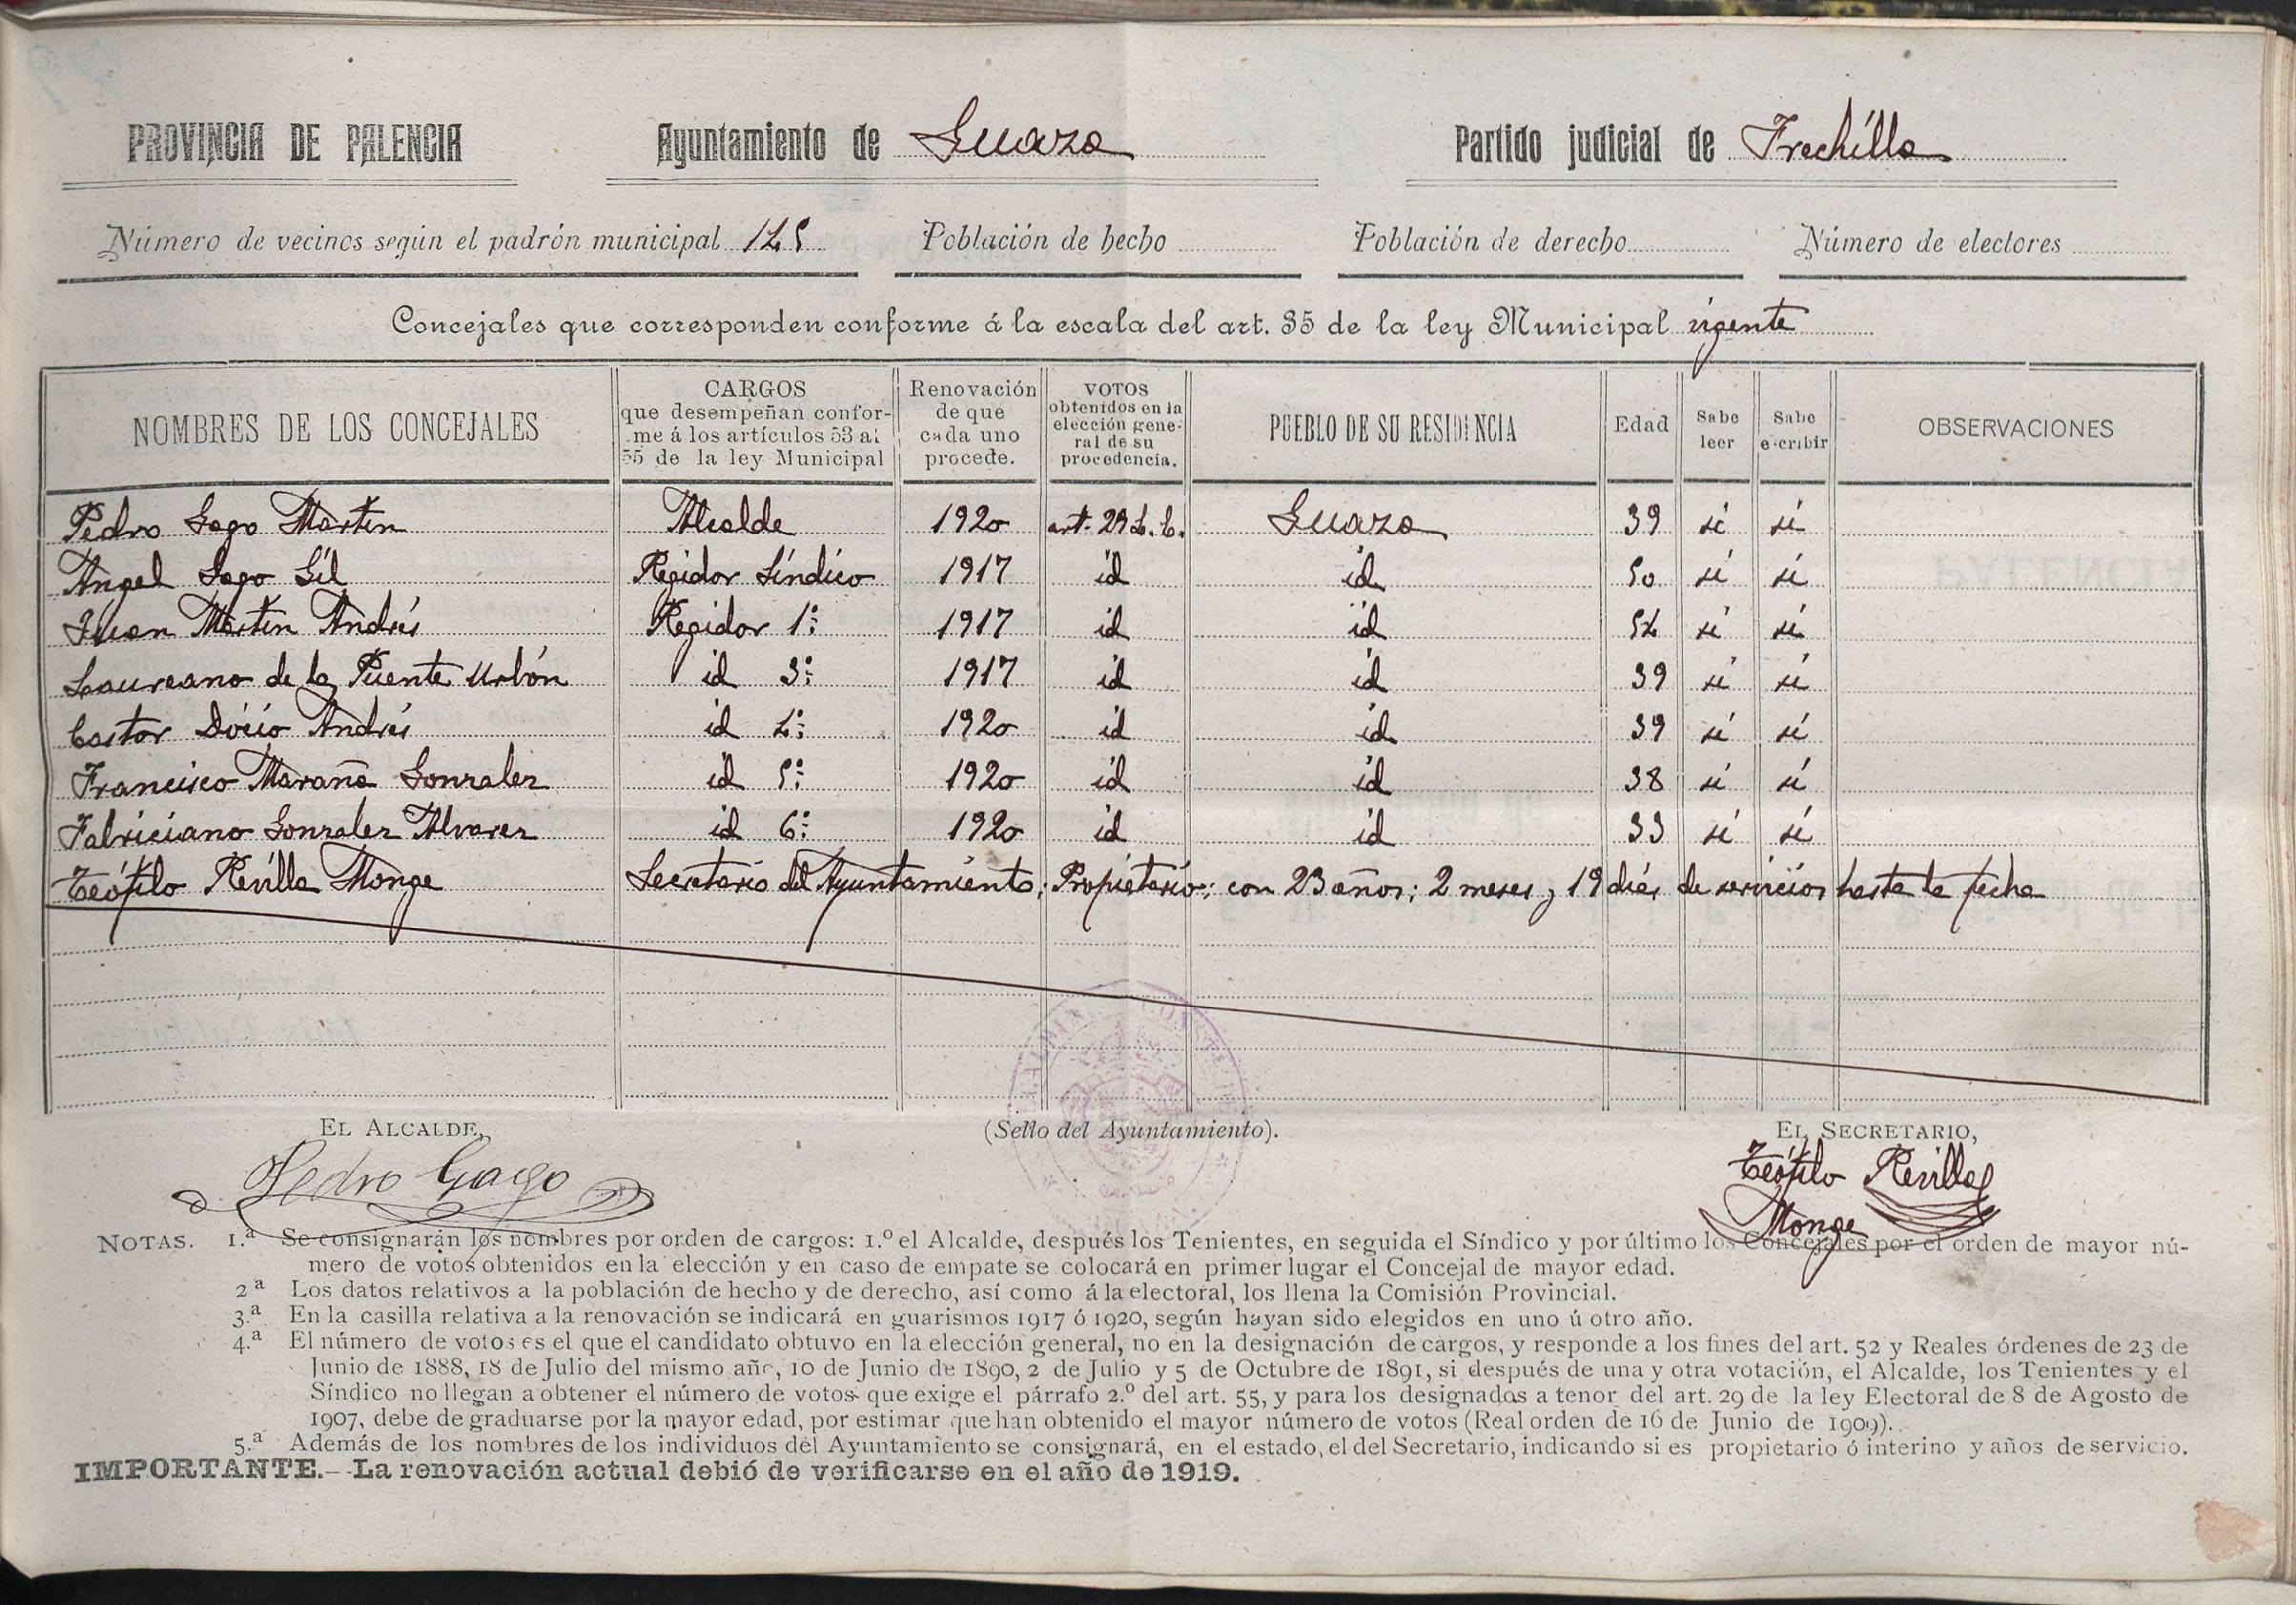 PROVINCIA DE PALENCIA Ayuntamiento de Guaza Partido judicial de Frechilla
Número de vecinos según el padrón municipal 145 Población de hecho Población de derecho Número de electores
Concejales que corresponden conforme á la escala del art. 35 de la ley Municipal vigente
NOMBRES DE LOS CONCEJALES
CARGOS
que desempeñan confor-
me á los artículos 53 al
55 de la ley Municipal
Renovación
de que
cada uno
procede.
VOTOS
obtenidos en la
elección gene-
ral de su
procedencia.
PUEBLO DE SU RESIDENCIA
Edad
Sabe
leer
Sabe
escribir
OBSERVACIONES
Pedro Gago Martin Alcalde 1920 art. 29 L. E. Guaza 39 si si
Angel Gago Gil Regidor Síndico 1917 id id 50 si si
Juan Martin Andrés Regidor 1º 1917 id id 54 si si
Laureano de la Puente Urbón id 3º 1917 id id 39 si si
Castor Dócio Andrés id 4º 1920 id id 39 si si
Francisco Maraña Gonzalez id 5º 1920 id id 38 si si
Fabriciano Gonzalez Alvarez id 6º 1920 id id 33 si si
Teófilo Revilla Monge Secretario del Ayuntamiento; Propietario; con 23 años; 2 meses y 19 dias de servicios hasta la fecha
EL ALCALDE, (Sello del Ayuntamiento). EL SECRETARIO,
Pedro Gago Teófilo Revilla
Monge
NOTAS. 1.ª Se consignarán los nombres por orden de cargos: 1.º el Alcalde, después los Tenientes, en seguida el Síndico y por último los Concejales por el orden de mayor nú-
mero de votos obtenidos en la elección y en caso de empate se colocará en primer lugar el Concejal de mayor edad.
2ª Los datos relativos a la población de hecho y de derecho, así como á la electoral, los llena la Comisión Provincial.
3.ª En la casilla relativa a la renovación se indicará en guarismos 1917 ó 1920, según hayan sido elegidos en uno ú otro año.
4.ª El número de votos es el que el candidato obtuvo en la elección general, no en la designación de cargos, y responde a los fines del art. 52 y Reales órdenes de 23 de
Junio de 1888, 18 de Julio del mismo año, 10 de Junio de 1890, 2 de Julio y 5 de Octubre de 1891, si después de una y otra votación, el Alcalde, los Tenientes y el
Síndico no llegan a obtener el número de votos que exige el párrafo 2.º del art. 55, y para los designados a tenor del art. 29 de la ley Electoral de 8 de Agosto de
1907, debe de graduarse por la mayor edad, por estimar que han obtenido el mayor número de votos (Real orden de 16 de Junio de 1909).
5.ª Además de los nombres de los individuos del Ayuntamiento se consignará, en el estado, el del Secretario, indicando si es propietario ó interino y años de servicio.
IMPORTANTE.—La renovación actual debió de verificarse en el año de 1919.